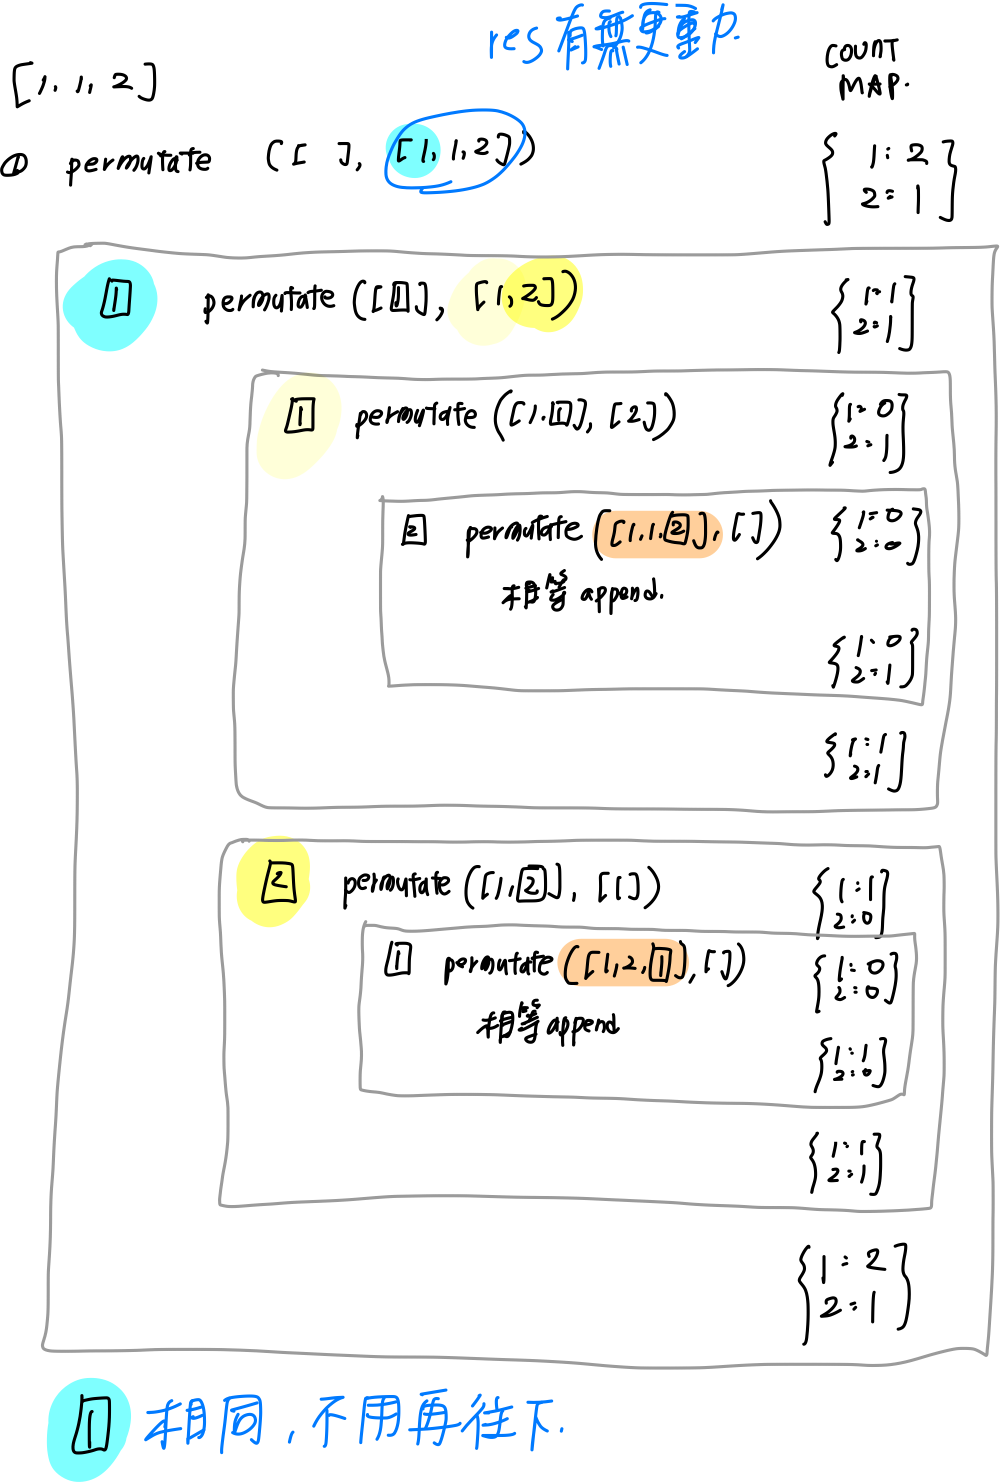 res 有無更動.
COUNT
MAP.
[1, 1, 2]
① permutate ([ ], [1, 1, 2])
{ 1: 2
2: 1 }
1 permutate ([1], [1, 2])
{ 1: 1
2: 1 }
1 permutate ([1. 1], [2])
{ 1: 0
2: 1 }
2 permutate ([1.1.2], [ ])
{ 1: 0
2: 0 }
相等 append.
{ 1: 0
2: 1 }
{ 1: 1
2: 1 }
2 permutate ([1, 2], [1])
{ 1: 1
2: 0 }
1 permutate ([1, 2, 1], [ ])
{ 1: 0
2: 0 }
相等 append
{ 1: 1
2: 0 }
{ 1: 1
2: 1 }
{ 1: 2
2: 1 }
1 相同, 不用再往下.